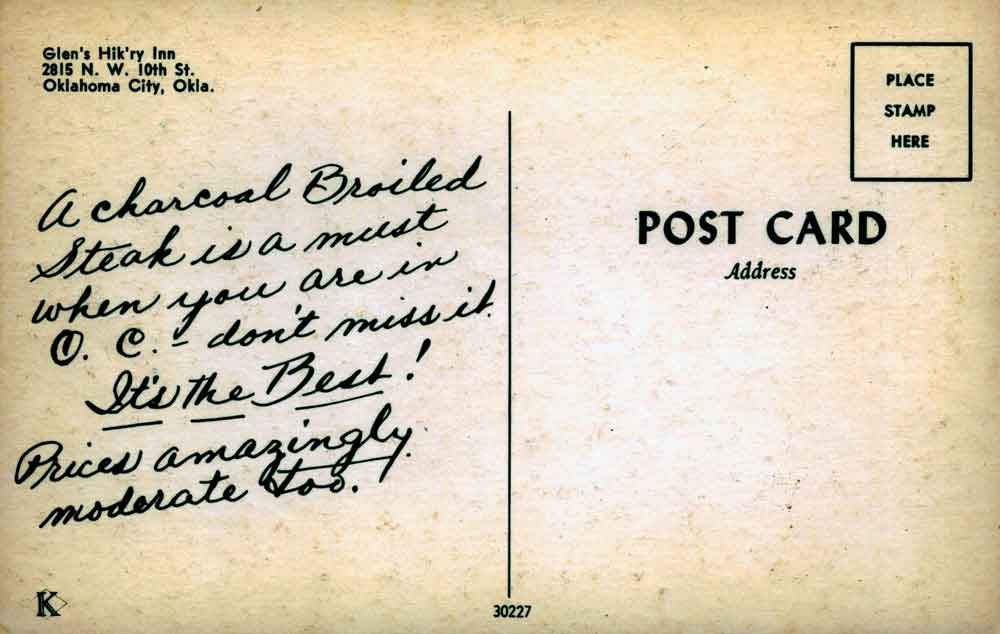 Glen's Hik'ry Inn
2815 N. W. 10th St.
Oklahoma City, Okla.
A charcoal Broiled
Steak is a must
when you are in
O. C. - don't miss it.
It's the Best!
Prices amazingly
moderate too.
PLACE
STAMP
HERE
POST CARD
Address
K
30227